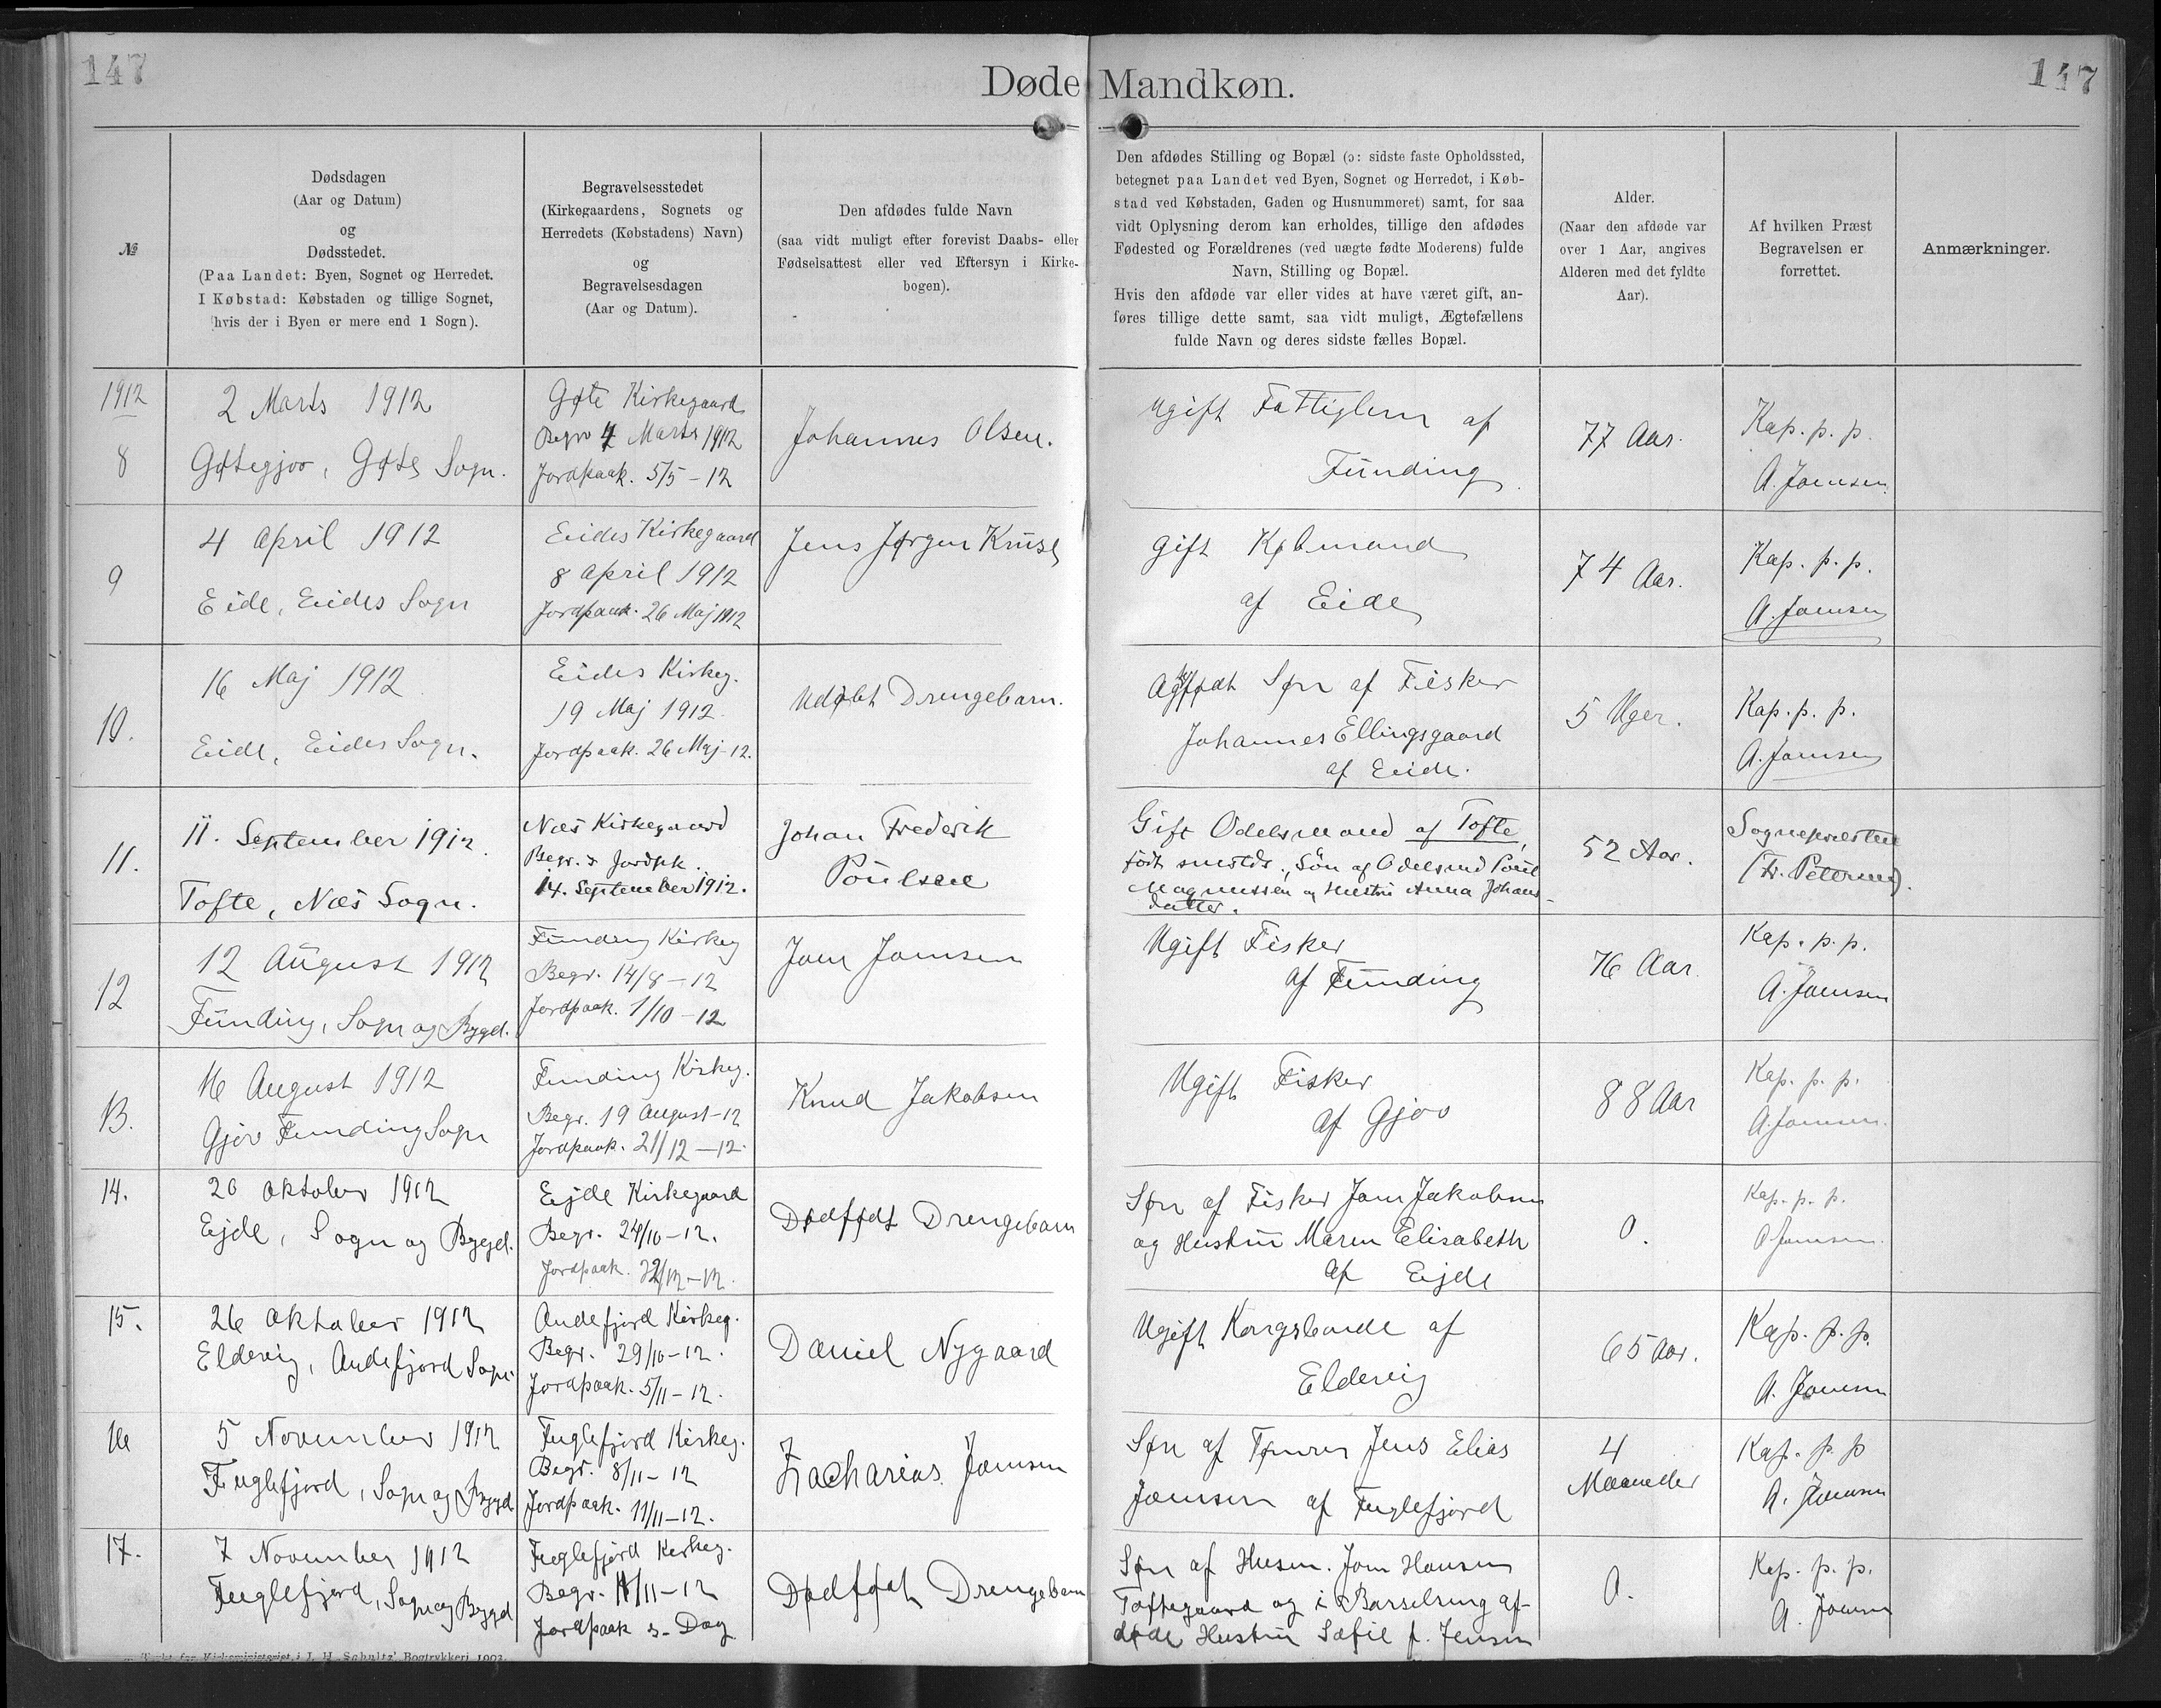 147
Døde Mandkøn.
147
№
Dødsdagen
(Aar og Datum)
og
Dødsstedet.
(Paa Landet: Byen, Sognet og Herredet.
I Købstad: Købstaden og tillige Sognet,
hvis der i Byen er mere end 1 Sogn).
Begravelsesstedet
(Kirkegaardens, Sognets og
Herredets (Købstadens) Navn)
og
Begravelsesdagen
(Aar og Datum).
Den afdødes fulde Navn
(saa vidt muligt efter forevist Daabs- eller
Fødselsattest eller ved Eftersyn i Kirke-
bogen).
Den afdødes Stilling og Bopæl (ɔ: sidste faste Opholdssted,
betegnet paa Landet ved Byen, Sognet og Herredet, i Køb-
stad ved Købstaden, Gaden og Husnummeret) samt, for saa
vidt Oplysning derom kan erholdes, tillige den afdødes
Fødested og Forældrenes (ved uægte fødte Moderens) fulde
Navn, Stilling og Bopæl.
Hvis den afdøde var eller vides at have været gift, an-
føres tillige dette samt, saa vidt muligt, Ægtefællens
fulde Navn og deres sidste fælles Bopæl.
Alder.
(Naar den afdøde var
over 1 Aar, angives
Alderen med det fyldte
Aar).
Af hvilken Præst
Begravelsen er
forrettet.
Anmærkninger.
1912
8
2 Marts 1912
Gøtegjov, Gøte Sogn.
Gøte Kirkegaard
Begr 4 Marts 1912
Jordpaak. 5/5 - 12
Johannes Olsen.
Ugift Fattiglem af
Funding
77 Aar.
Kap. p. p.
A. Joensen
9
4 April 1912
Eide, Eides Sogn
Eides Kirkegaard
8 April 1912
Jordpaak. 26 Maj 1912
Jens Jørgen Kruse
gift Købmand
af Eide
74 Aar.
Kap. p. p.
A. Joensen
10.
16 Maj 1912
Eide, Eides Sogn.
Eides Kirkeg.
19 Maj 1912.
Jordpaak. 26 Maj-12.
Udøbt Drengebarn.
Søn af Fisker
Johannes Ellingsgaard
af Eide.
5 Uger.
Kap. p. p.
A. Joensen
11.
11. September 1912.
Tofte, Næs Sogn.
Næs Kirkegaard
Begr. & Jordpk.
14. September 1912.
Johan Frederik
Poulsen
Gift Odelsmand af Tofte,
født smstds., Søn af Odelsmd Poul
Magnussen og Hustru Anna Johans-
datter.
52 Aar.
Sognepræsten
(Fr. Petersen).
12
12 August 1912
Funding, Sogn og Bygd.
Funding Kirkeg
Begr. 14/8 - 12
Jordpaak. 1/10 - 12
Joen Joensen
Ugift Fisker
af Funding
76 Aar.
Kap. p. p.
A. Joensen
13.
16 August 1912
Gjov Funding Sogn
Funding Kirkeg.
Begr. 19 August-12
Jordpaak. 21/12 - 12.
Knud Jakobsen
Ugift Fisker
af Gjov
88 Aar
Kap. p. p.
A. Joensen.
14.
20 Oktober 1912
Ejde, Sogn og Bygd.
Ejde Kirkegaard
Begr. 24/10 - 12.
Jordpaak. 22/12 - 12.
Dødfødt Drengebarn
Søn af Fisker Joen Jakobsen
og Hustru Maren Elisabeth
af Ejde
0.
Kap. p. p.
A Joensen.
15.
26 Oktober 1912
Eldevig, Andefjord Sogn.
Andefjord Kirkeg.
Begr. 29/10 - 12.
Jordpaak. 5/11 - 12.
Daniel Nygaard
Ugift Kongsbonde af
Eldevig
65 Aar.
Kap. p. p.
A. Joensen
16
5 November 1912
Fuglefjord, Sogn og Bygd
Fuglefjord Kirkeg.
Begr. 8/11 - 12
Jordpaak. 11/11 - 12.
Zacharias Joensen
Søn af Tømrer Jens Elias
Joensen af Fuglefjord
4
Maaneder
Kap. p. p
A. Joensen
17.
7 November 1912
Fuglefjord, Sogn og Bygd
Fuglefjord Kirkeg.
Begr. 11/11 - 12
Jordpaak s. Dag
Dødfødt Drengebarn
Søn af Husm. Joen Hansen
Toftegaard og i Barselseng af-
døde Hustru Sofie f. Jensen
0.
Kap. p. p.
A. Joensen